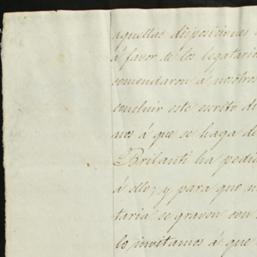 aquellas disposiciones
á favor de los legatario
comendaron á nosotros
concluir este escrito di
mos á que se haga de
Brilanti ha pedid
á ello; y para que n
taria se graven con
lo invitamos á que